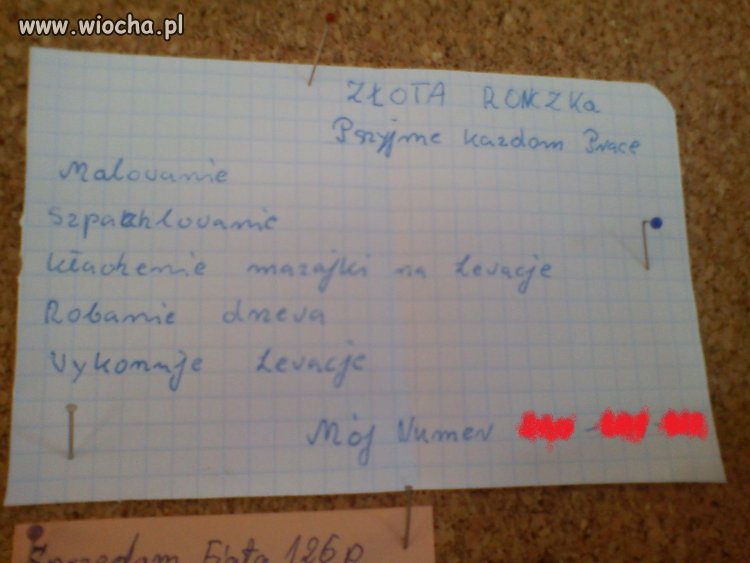 www.wiocha.pl
ZŁOTA RONCZKa
Pszyjme kazdom Prace
Malovanie
Szpachlovanie
Kładzenie mazajki na Levacje
Robanie dneva
Vykonuje Levacje
Mój Numer
Sprzedam Fiata 126p